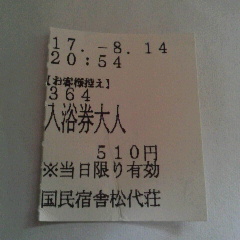 17.-8.14
20:54
【お客様控え】
364
入浴券大人
510円
※当日限り有効
国民宿舎松代荘